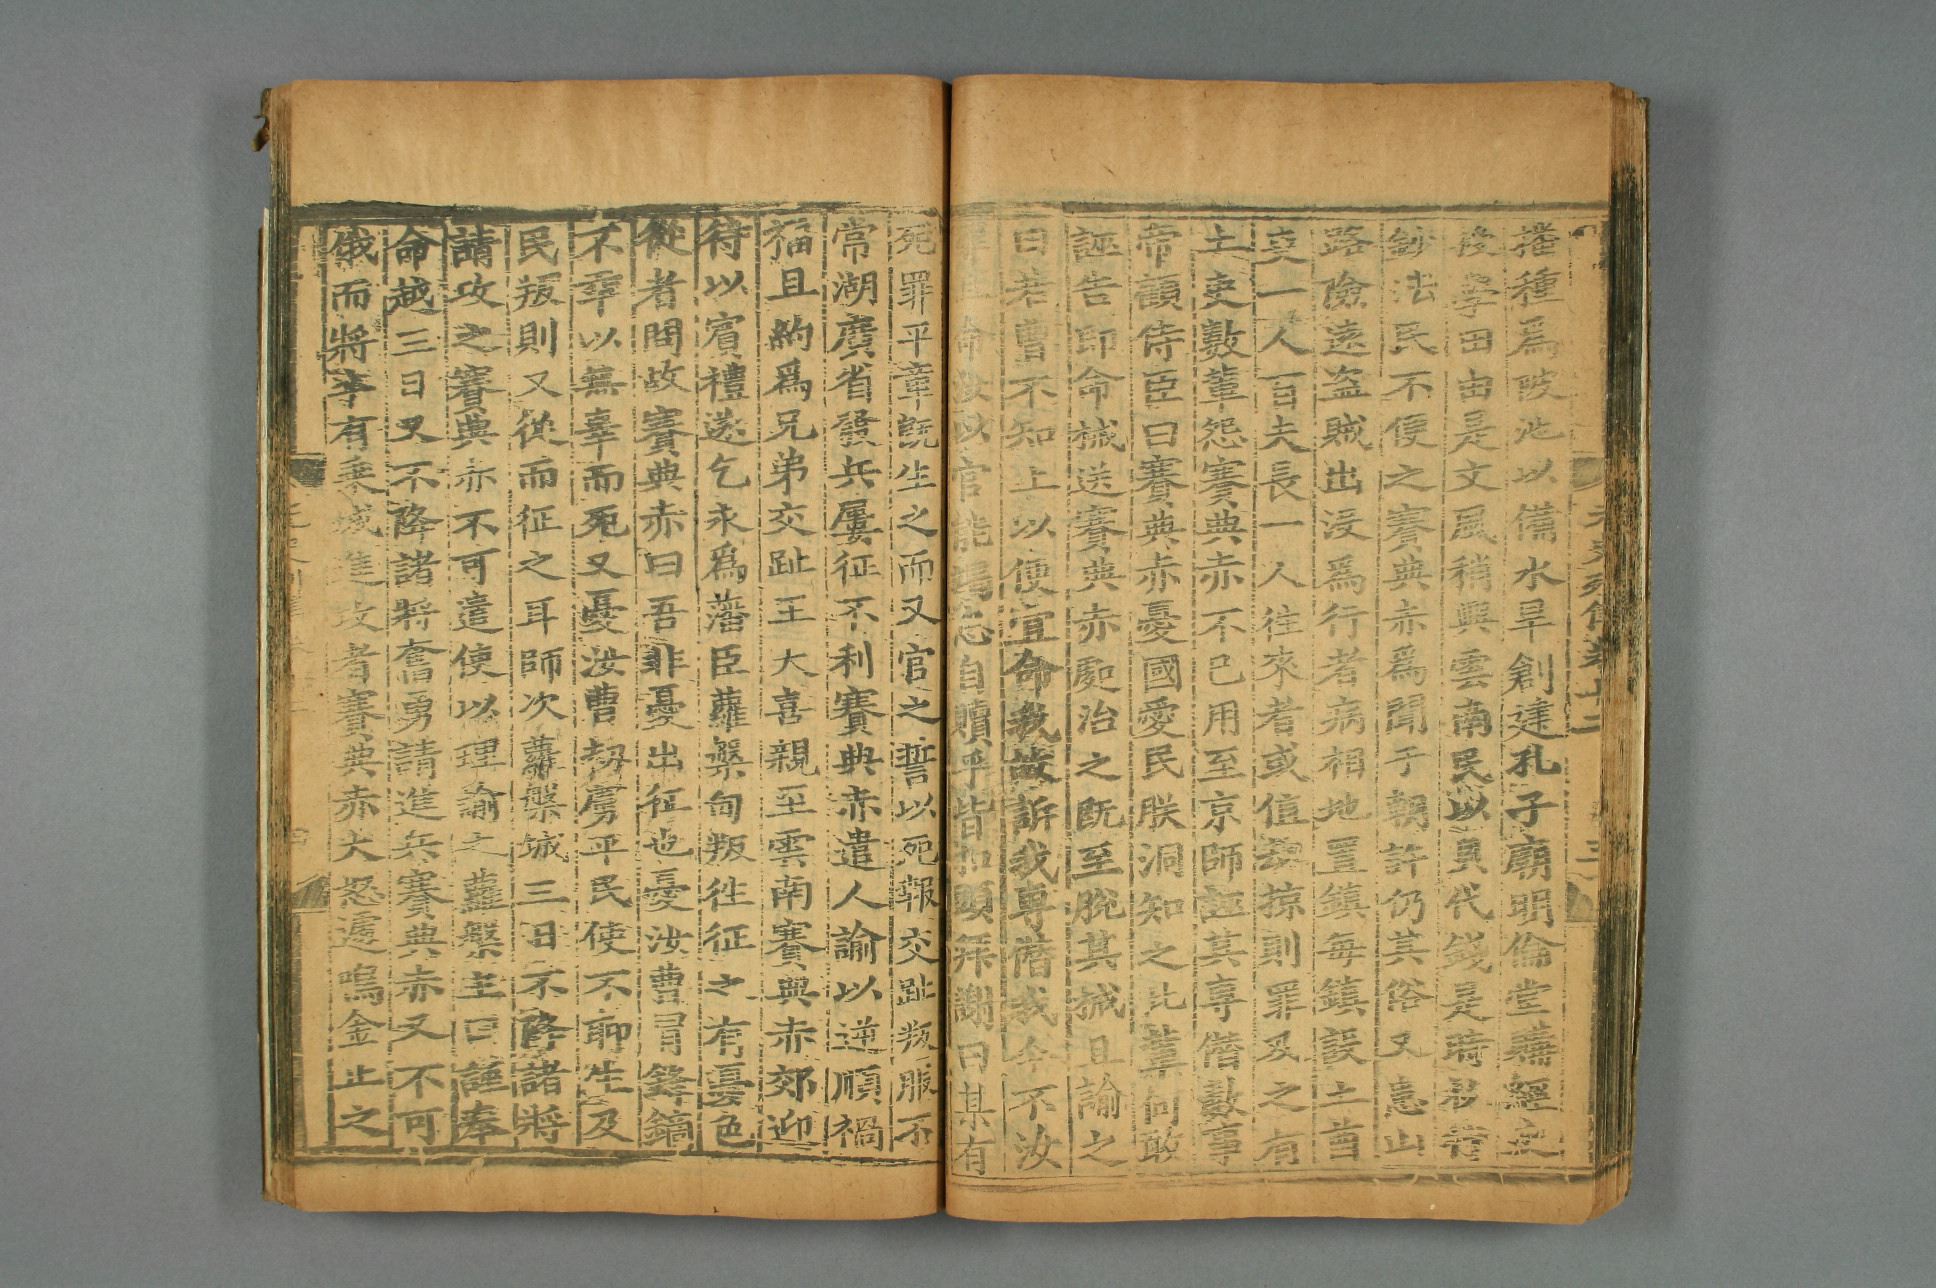 播種為陂池以備水旱創建孔子廟明倫堂購經史
授學田由是文風稍興雲南民以貝代錢是時初行
鈔法民不便之賽典赤為聞于朝許仍其俗又患山
路險遠盗賊出没為行者病相地置鎮每鎮設土酋
吏一人百夫長一人往來者或值劫掠則罪及之有
土吏數輩怨賽典赤不已用至京師誣其専僭數事
帝顧侍臣曰賽典赤憂國愛民朕洞知之此輩何敢
誣告即命械送賽典赤處治之既至脫其械且諭之
曰若曹不知上以便宜命我故訴我専僭我今不汝
罪且命汝以官能竭忠自贖乎皆扣頭拜謝曰某有
死罪平章既生之而又官之誓以死報交趾叛服不
常湖廣省發兵屢征不利賽典赤遣人諭以逆順禍
福且約為兄弟交趾王大喜親至雲南賽典赤郊迎
待以賓禮遂乞永為藩臣蘿槃甸叛徃征之有憂色
從者問故賽典赤曰吾非憂出征也憂汝曹冒鋒鏑
不幸以無辜而死又憂汝曹刼虜平民使不聊生及
民叛則又從而征之耳師次蘿槃城三日不降諸將
請攻之賽典赤不可遣使以理諭之蘿槃主曰謹奉
命越三日又不降諸將奮勇請進兵賽典赤又不可
俄而將卒有乘城進攻者賽典赤大怒遽鳴金止之
元史列傳卷十二
三